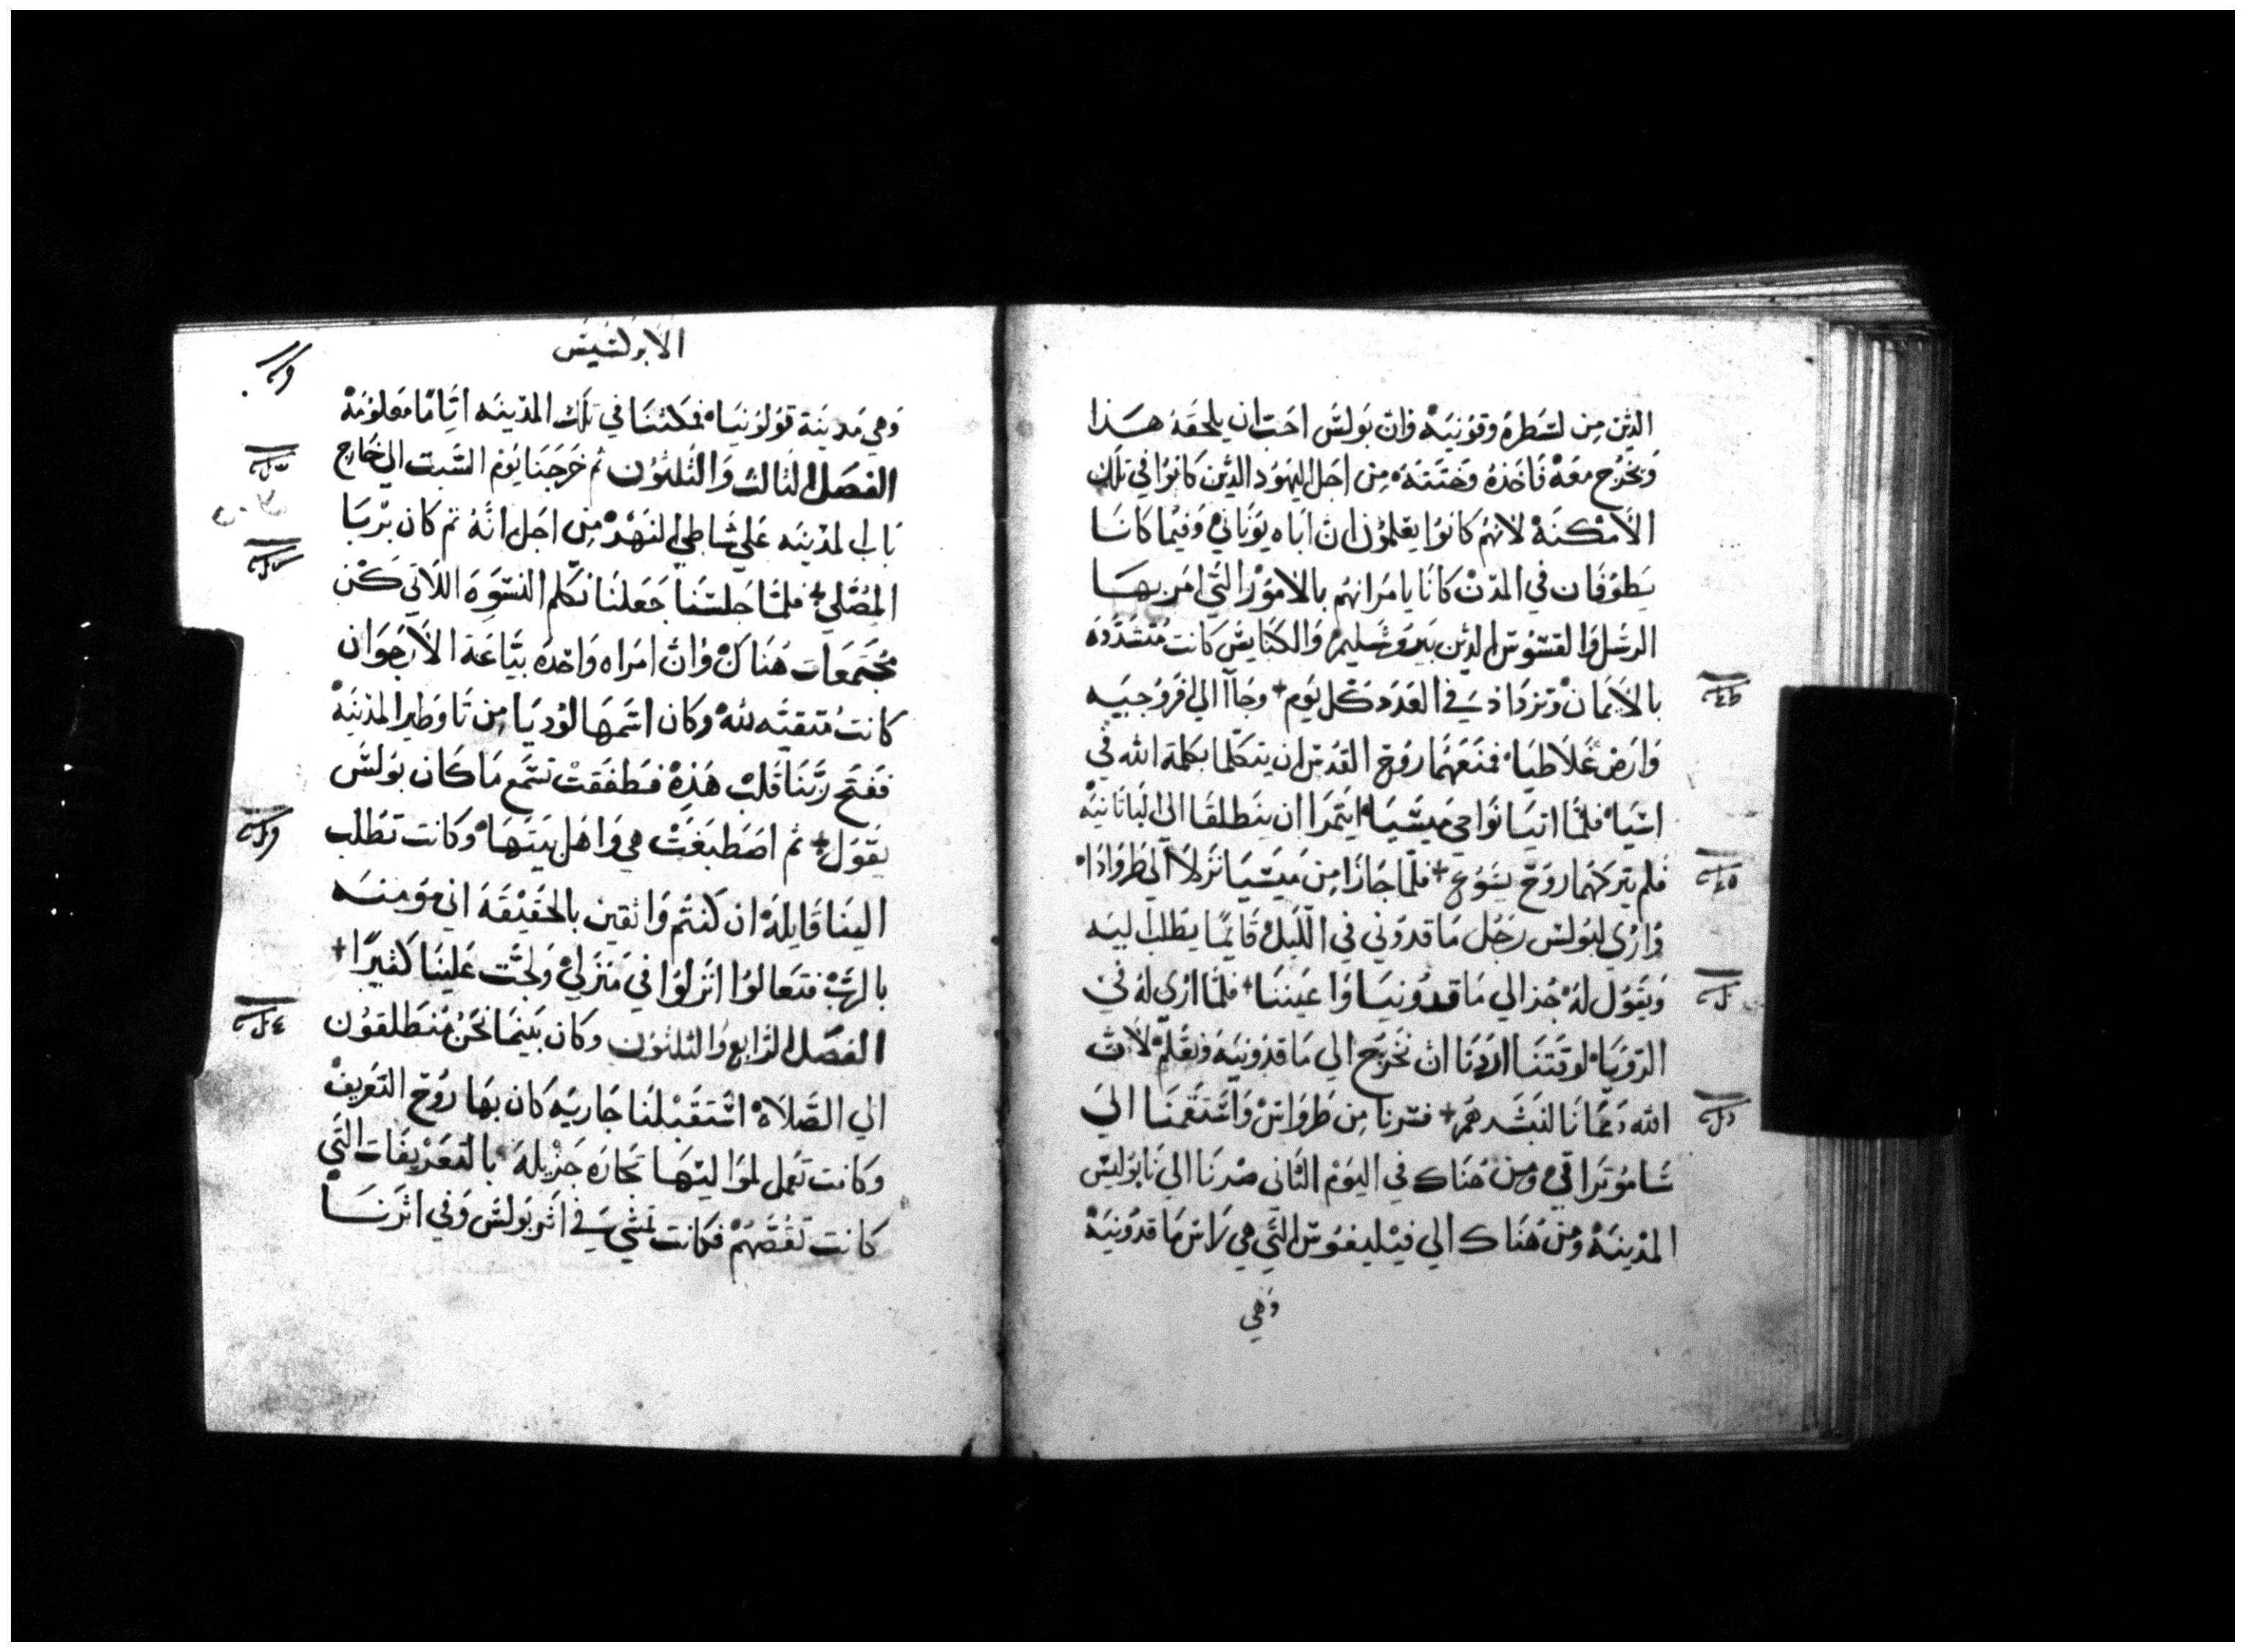 الذين من لسطره وقونيه وان بولس احب ان يلحقه هذا
ويخرج معه فاخذه وختنه من اجل اليهود الذين كانوا في تلك
الامكنه لانهم كانوا يعلمون ان اباه يوناني وفيما كانا
يطوفان في المدن كانا يامرانهم بالامور التي امر بها
الرسل والقسوس الذين بيروشليم والكنايس كانت متشدده
بالايمان وتزداد في العدد كل يوم + وجاآ الي فروجيه
وارض غلاطيا فمنعهما روح القدس ان يتكلما بكلمة الله في
اسيا فلما اتيا نواحي ميسيا ايتمرا ان ينطلقا الي
فلم يتركهما روح يسوع + فلما جازا من ميسيا نزلا الي طرواذا
واري لبولس رجل ماقدوني في الليل قايما يطلب ليه
ويقول له جز الي ماقدونيا واعيننا + فلما اري له في
الرويا لوقتنا اردنا ان نخرج الي ماقدونيه ونعلم لان
الله دعانا لنبشرهم + فسرنا من طرواس واستقمنا الي
ساموتراقي ومن هناك في اليوم الثاني صرنا الي نابوليس
المدينه ومن هناك الي فيليفوس التي هي راس ماقدونيه
وهي
الابركسيس
وهي مدينة قولونيا فمكثنا في تلك المدينه اياما معلومه
الفصل الثالث والثلثون ثم خرجنا يوم السبت الي خارج
باب المدينه علي شاطي النهر من اجل انه ثم كان يريا
المصلي + فلما جلسنا جعلنا نكلم النسوه اللاتي كن
مجتمعات هناك وان امراه واحده بياعة الارجوان
كانت متقيه لله وكان اسمها لوديا من تاوطير المدينه
ففتح ربنا قلب هذه فطفقت تسمع ما كان بولس
يقول + ثم اصطبغت هي واهل بيتها وكانت تطلب
الينا قايله ان كنتم واثقين بالحقيقه اني مومنه
بالرب فتعالوا انزلوا في منزلي ولجت علينا كثيرا +
الفصل الرابع والثلثون وكان بينما نحن منطلقون
الي الصلاه استقبلنا جاريه كان بها روح التعريف
وكانت تعمل لمواليها تجاره جزيله بالتعريفات التي
كانت تقصهم فكانت تمشي في اثر بولس وفي اثرنا